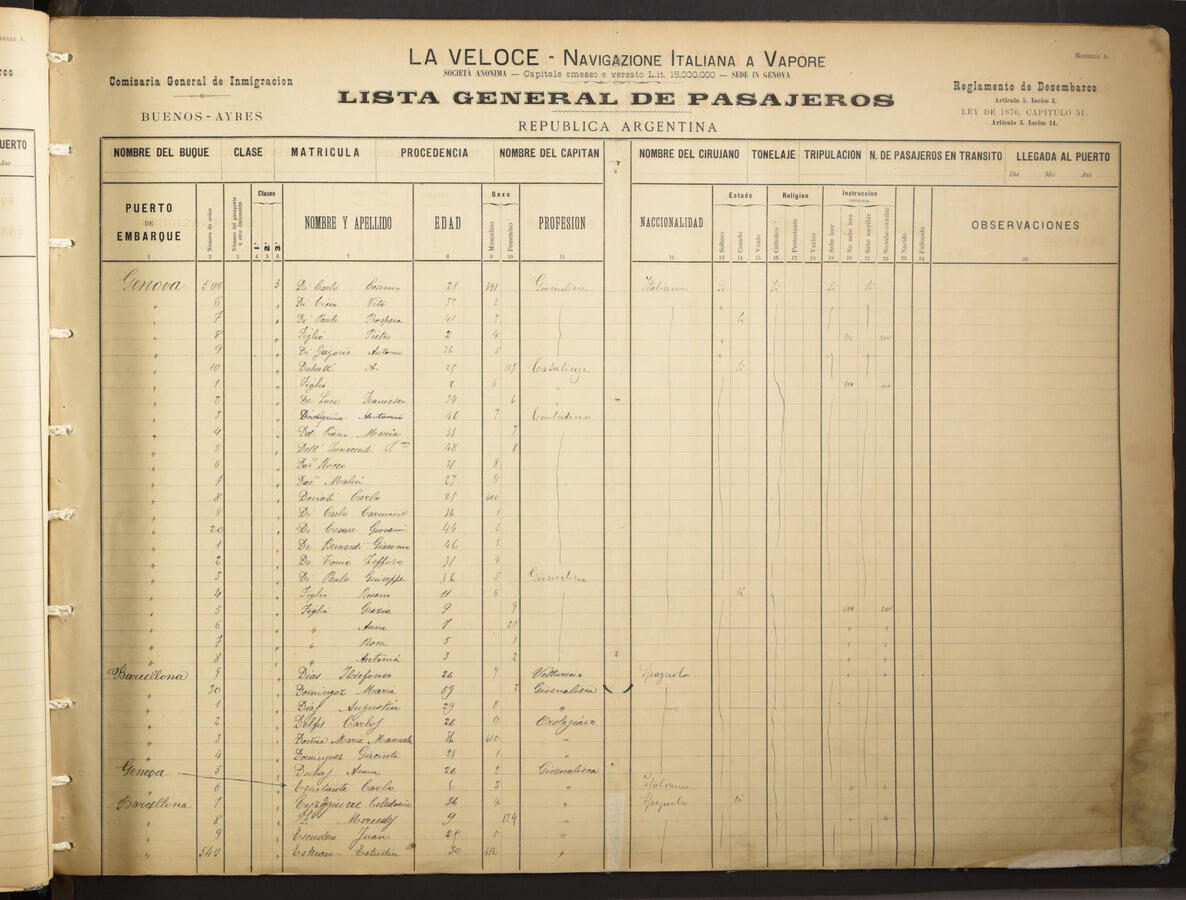 MODELLO A.
LA VELOCE - NAVIGAZIONE ITALIANA A VAPORE
SOCIETÀ ANONIMA — Capitale emesso e versato L.it. 15,000,000 — SEDE IN GENOVA
Comisaria General de Inmigracion
BUENOS-AYRES
LISTA GENERAL DE PASAJEROS
REPUBLICA ARGENTINA
Reglamento de Desembarco
Articulo 5. Inciso 3,
LEY DE 1876, CAPITULO 51.
Articulo 3. Inciso 14.
NOMBRE DEL BUQUE CLASE MATRICULA PROCEDENCIA NOMBRE DEL CAPITAN NOMBRE DEL CIRUJANO TONELAJE TRIPULACION N. DE PASAJEROS EN TRANSITO LLEGADA AL PUERTO
Dia Mes Ano
PUERTO DE EMBARQUE Número de orden Clases 1ª 2ª 3ª NOMBRE Y APELLIDO EDAD Sexo Masculino Femenino PROFESION NACCIONALIDAD Estado Soltero Casado Viudo Religion Catholico Protestante Varios Instruccion Sabe leer No sabe leer Sabe escribir No sabe escribir Nacido Fallecido OBSERVACIONES
1 2 3 4 5 6 7 8 9 10 11 12 13 14 15 16 17 18 19 20 21 22 23 24 25
Genova 506 3 De Carlo Cosimo 28 391 Giornaliere Italiano Si Si Si Si
" 6 " Di Cicco Vito 32 2
" 7 " Di Paulo Prospero 41 3 Si
" 8 " Figlio Pietro 2 4 no no
" 9 " Di Gregorio Antonio 36 5
" 10 " A. 25 115 Casalinga Si
" 1 " Figlio 2 6 no no
" 2 " De Luca Francesca 34 6
" 3 " Antonio 46 7 Contadino
" 4 " Del Piano Maria 31 7
" 5 " 48 8
" 6 " Rocco 31 8
" 7 " 27 9
" 8 " Donati Carlo 25 400
" 9 " Di Carlo Carmine 36 1
" 20 " Di Cesare Giovanni 44 2
" 1 " De Bernardi Giacomo 46 3
" 2 " De Tomo Zeffiro 31 4
" 3 " Di Paulo Giuseppe 36 5 Giornaliere
" 4 " Figlio Rosario 11 6 Si
" 5 " Figlia Grazia 9 9 no no
" 6 " " Anna 7 20 " "
" 7 " " Rosa 5 1 " "
" 8 " " Antonia 3 2 " "
Barcellona 9 " Dias Ildefonso 26 7 Vetturino Spagnolo
" 30 " Domingoz Maria 59 3 Giornaliera
" 1 " Diaz Augustin 29 8 "
" 2 " Delfis Carlos 20 9 Orologiaio
" 3 " Maria Manuela 36 410 "
" 4 " Domingues Giacinta 28 1 "
Genova 5 " Dubas Anna 20 2 Giornaliera
" 6 " Equitante Carlo 6 3 " Italiano " "
Barcellona 7 " Eyzaguirre Celedonio 36 4 " Spagnolo Si
" 8 " Mercedes 9 124 " " "
" 9 " Escudero Juan 28 5 "
" 540 " Esteban Estudin 30 416 "